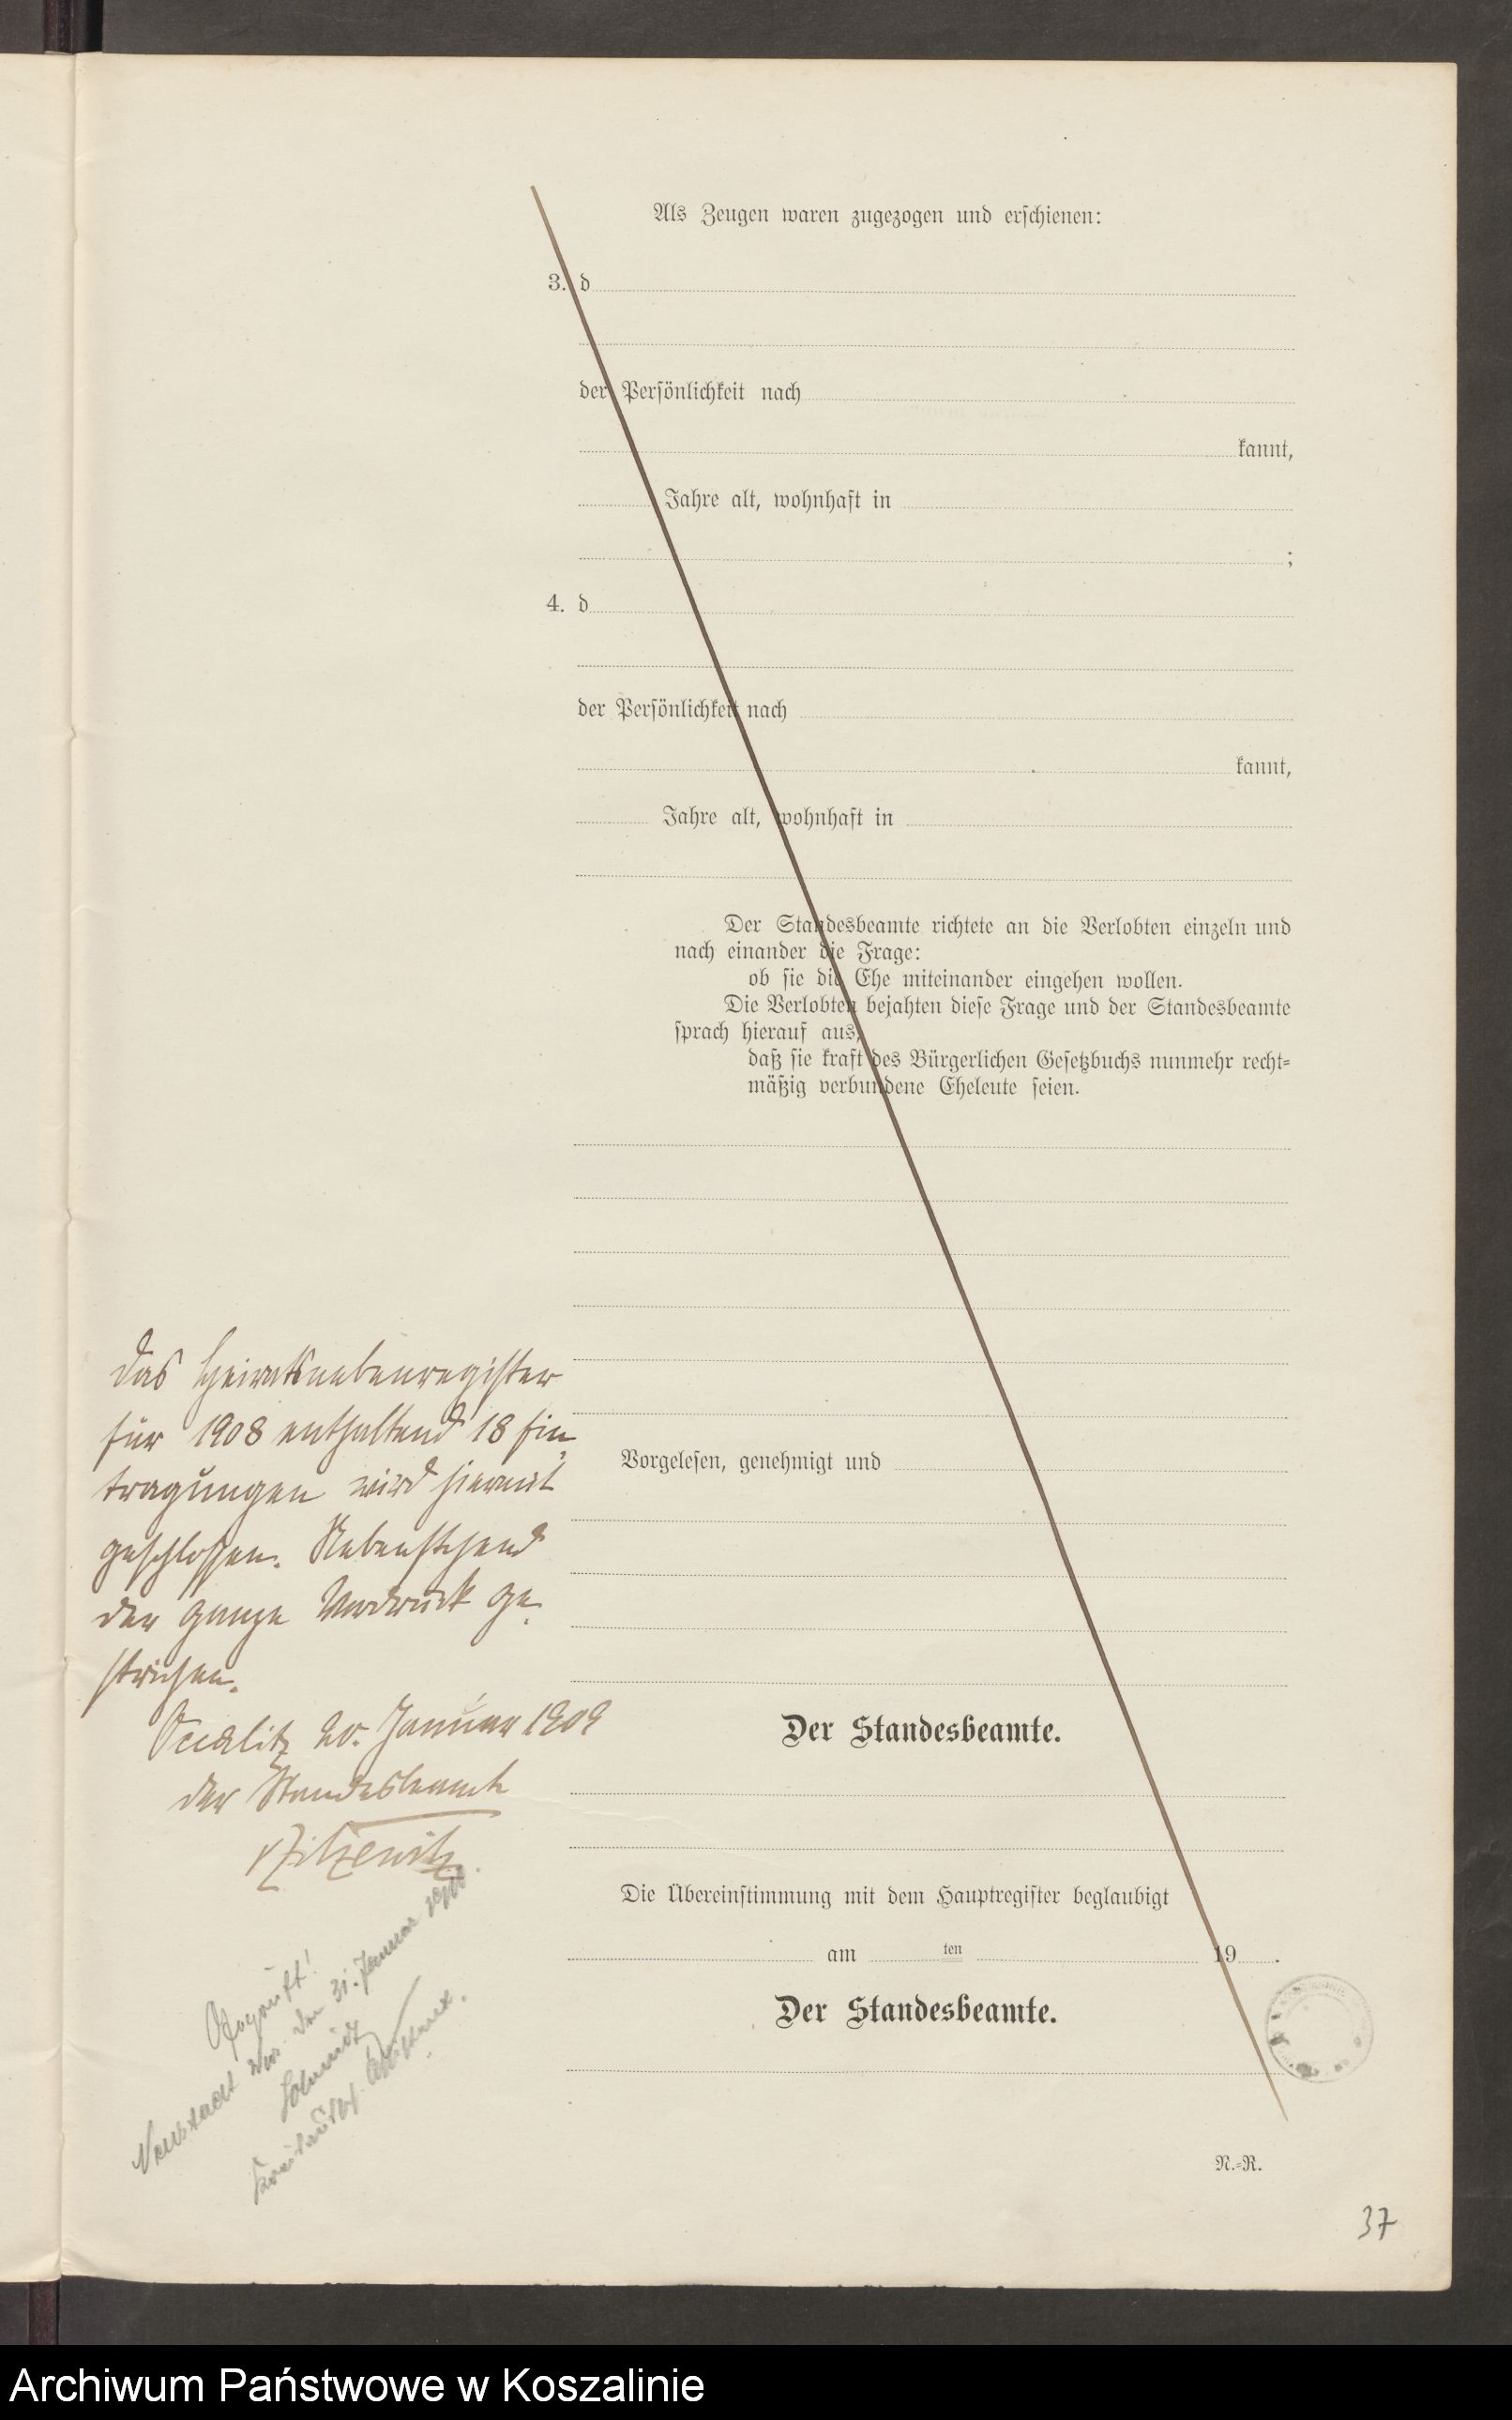 Als Zeugen waren zugezogen und erschienen:
3. d
der Persönlichkeit nach
kannt,
Jahre alt, wohnhaft in
;
4. d
der Persönlichkeit nach
kannt,
Jahre alt, wohnhaft in
Der Standesbeamte richtete an die Verlobten einzeln und
nach einander die Frage:
ob sie die Ehe miteinander eingehen wollen.
Die Verlobten bejahten diese Frage und der Standesbeamte
sprach hierauf aus,
daß sie kraft des Bürgerlichen Gesetzbuchs nunmehr recht-
mäßig verbundene Eheleute seien.
Das Heiratsnebenregister
für 1908 enthaltend 18 Ein-
tragungen wird hiermit
geschlossen. Nebenstehend
der ganze Vordruck ge-
strichen.
Occalitz 20. Januar 1909
der Standesbeamte
v Zitzewitz
Vorgelesen, genehmigt und
Der Standesbeamte.
Die Übereinstimmung mit dem Hauptregister beglaubigt
am ten 19 .
Der Standesbeamte.
Geprüft!
Neustadt Wpr. den 31. Januar
Schmidt
N.-R.
37
Archiwum Państwowe w Koszalinie